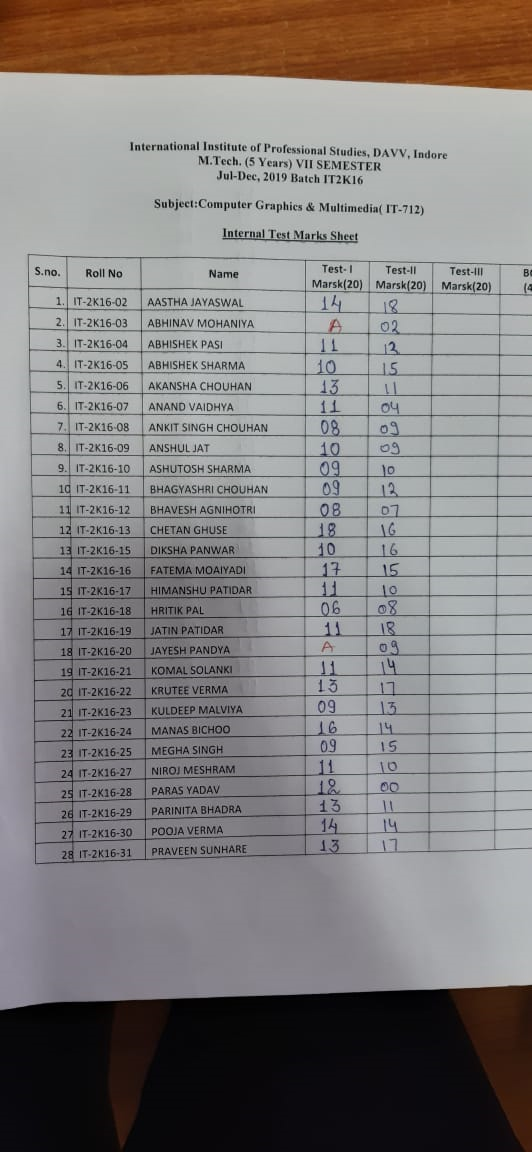 International Institute of Professional Studies, DAVV, Indore
M.Tech. (5 Years) VII SEMESTER
Jul-Dec, 2019 Batch IT2K16
Subject:Computer Graphics & Multimedia( IT-712)
Internal Test Marks Sheet
S.no. Roll No Name Test- I Marsk(20) Test-II Marsk(20) Test-III Marsk(20)
1. IT-2K16-02 AASTHA JAYASWAL 14 18
2. IT-2K16-03 ABHINAV MOHANIYA A 02
3. IT-2K16-04 ABHISHEK PASI 11 12
4. IT-2K16-05 ABHISHEK SHARMA 10 15
5. IT-2K16-06 AKANSHA CHOUHAN 13 11
6. IT-2K16-07 ANAND VAIDHYA 11 04
7. IT-2K16-08 ANKIT SINGH CHOUHAN 08 09
8. IT-2K16-09 ANSHUL JAT 10 09
9. IT-2K16-10 ASHUTOSH SHARMA 09 10
10 IT-2K16-11 BHAGYASHRI CHOUHAN 09 12
11 IT-2K16-12 BHAVESH AGNIHOTRI 08 07
12 IT-2K16-13 CHETAN GHUSE 18 16
13 IT-2K16-15 DIKSHA PANWAR 10 16
14 IT-2K16-16 FATEMA MOAIYADI 17 15
15 IT-2K16-17 HIMANSHU PATIDAR 11 10
16 IT-2K16-18 HRITIK PAL 06 08
17 IT-2K16-19 JATIN PATIDAR 11 18
18 IT-2K16-20 JAYESH PANDYA A 09
19 IT-2K16-21 KOMAL SOLANKI 11 14
20 IT-2K16-22 KRUTEE VERMA 13 17
21 IT-2K16-23 KULDEEP MALVIYA 09 13
22 IT-2K16-24 MANAS BICHOO 16 14
23 IT-2K16-25 MEGHA SINGH 09 15
24 IT-2K16-27 NIROJ MESHRAM 11 10
25 IT-2K16-28 PARAS YADAV 12 00
26 IT-2K16-29 PARINITA BHADRA 13 11
27 IT-2K16-30 POOJA VERMA 14 14
28 IT-2K16-31 PRAVEEN SUNHARE 13 17